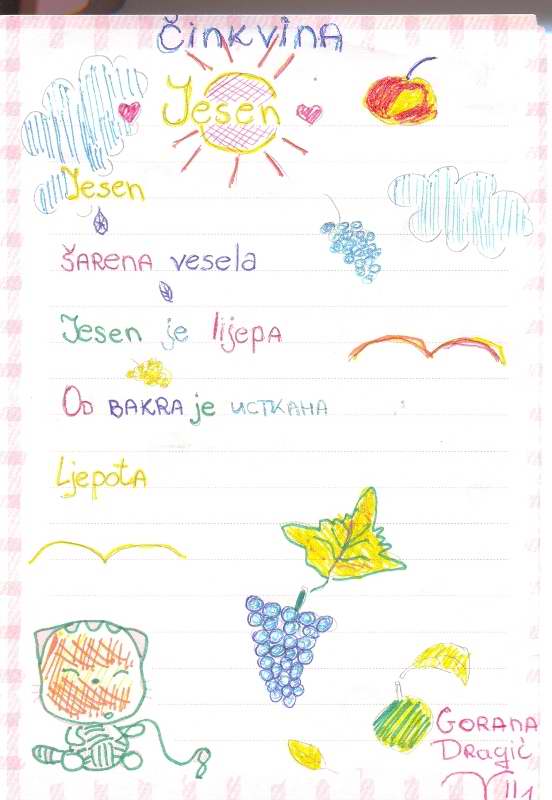 Činkvina
Jesen
Jesen
Šarena vesela
Jesen je lijepa
Od bakra je исткана
Ljepota
Gorana
Dragić